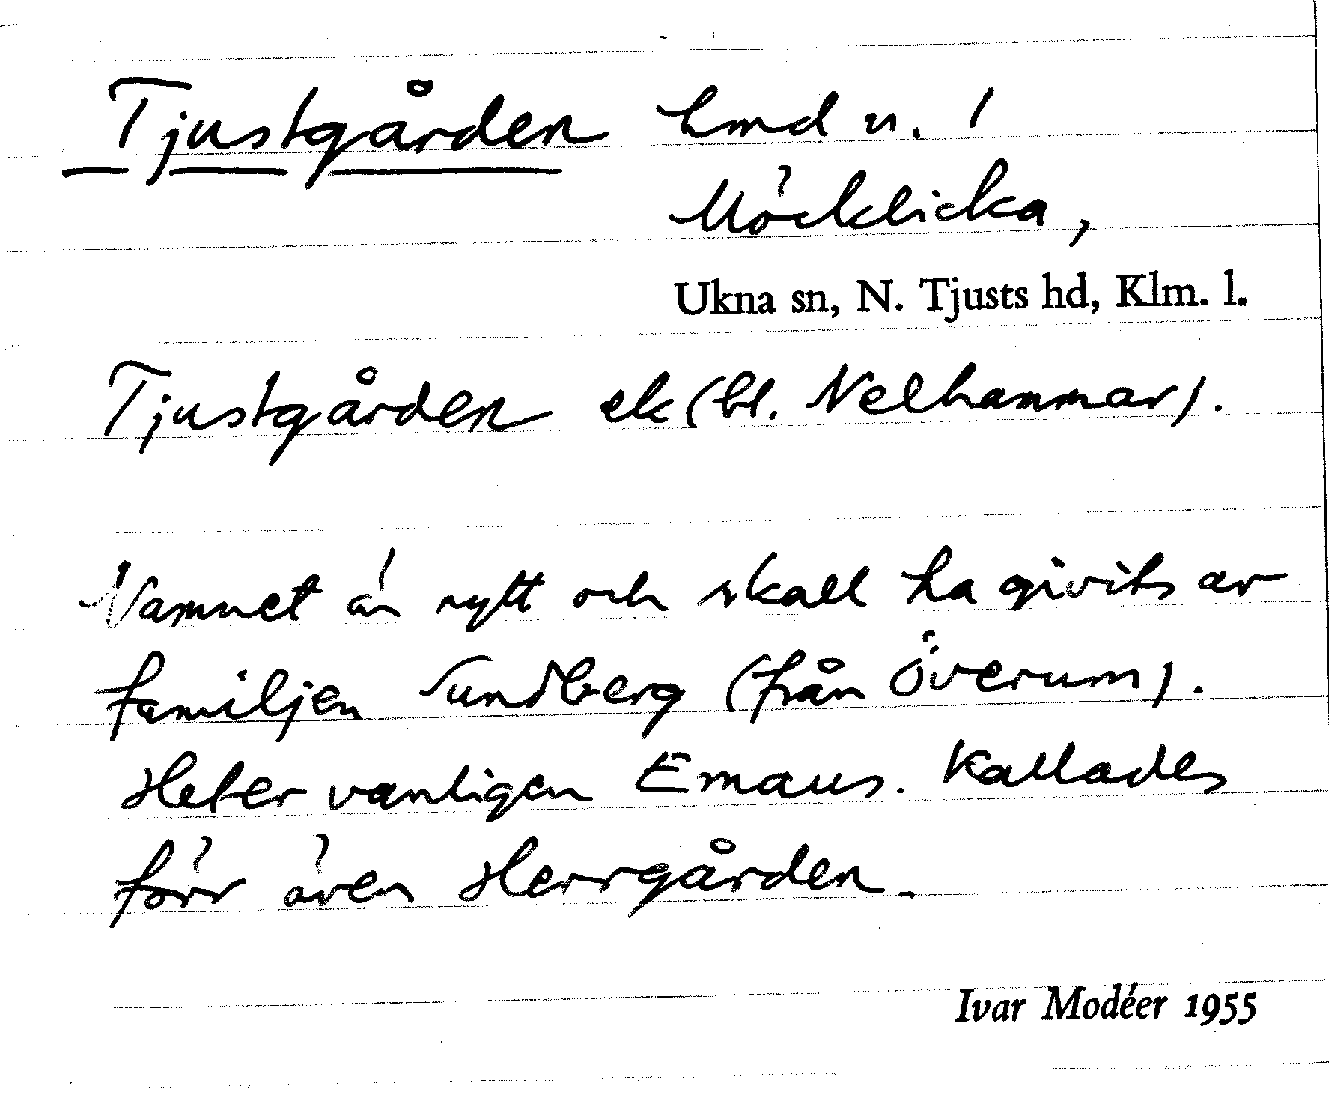 Tjustgården hmd u. 1
Möcklicka,
Ukna sn, N. Tjusts hd, Klm. l.
Tjustgården ek (bl. Nelhammar).
Namnet är nytt och skall ha givits av
familjen Sundberg (från Överum).
Heter vanligen Emaus. Kallades
förr även Herrgården.
Ivar Modéer 1955